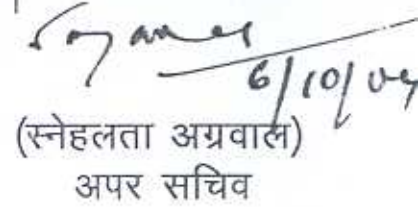 6/10/04
(स्नेहलता अग्रवाल)
अपर सचिव